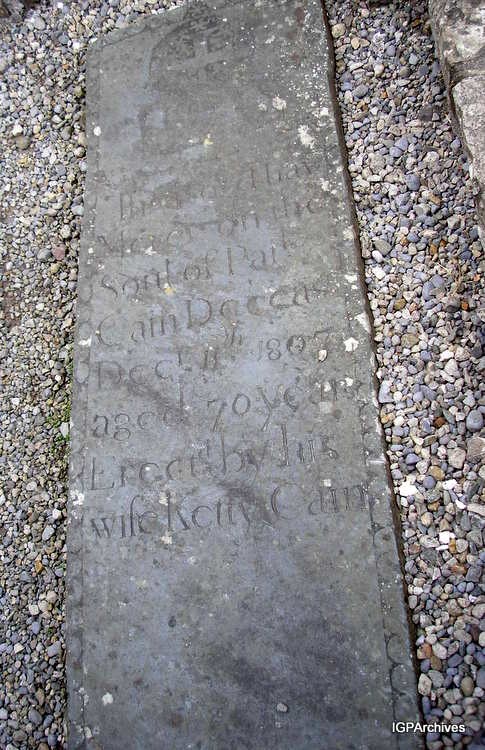 the
Mercy on the
Soul of Pat
Cain Deceas
Dec.r 11th 1807
aged 70 years
Erect.d by his
wife Kelly Cain
IGPArchives